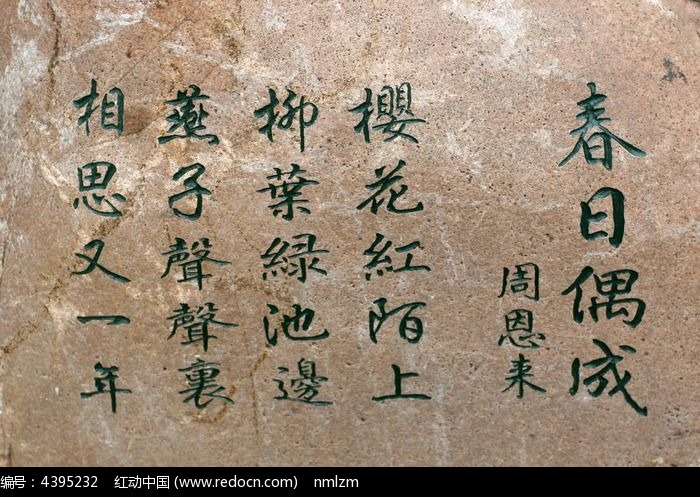 春日偶成
周恩来
櫻花紅陌上
柳葉緑池邊
燕子聲聲裏
相思又一年
编号：4395232 红动中国 (www.redocn.com) nmlzm